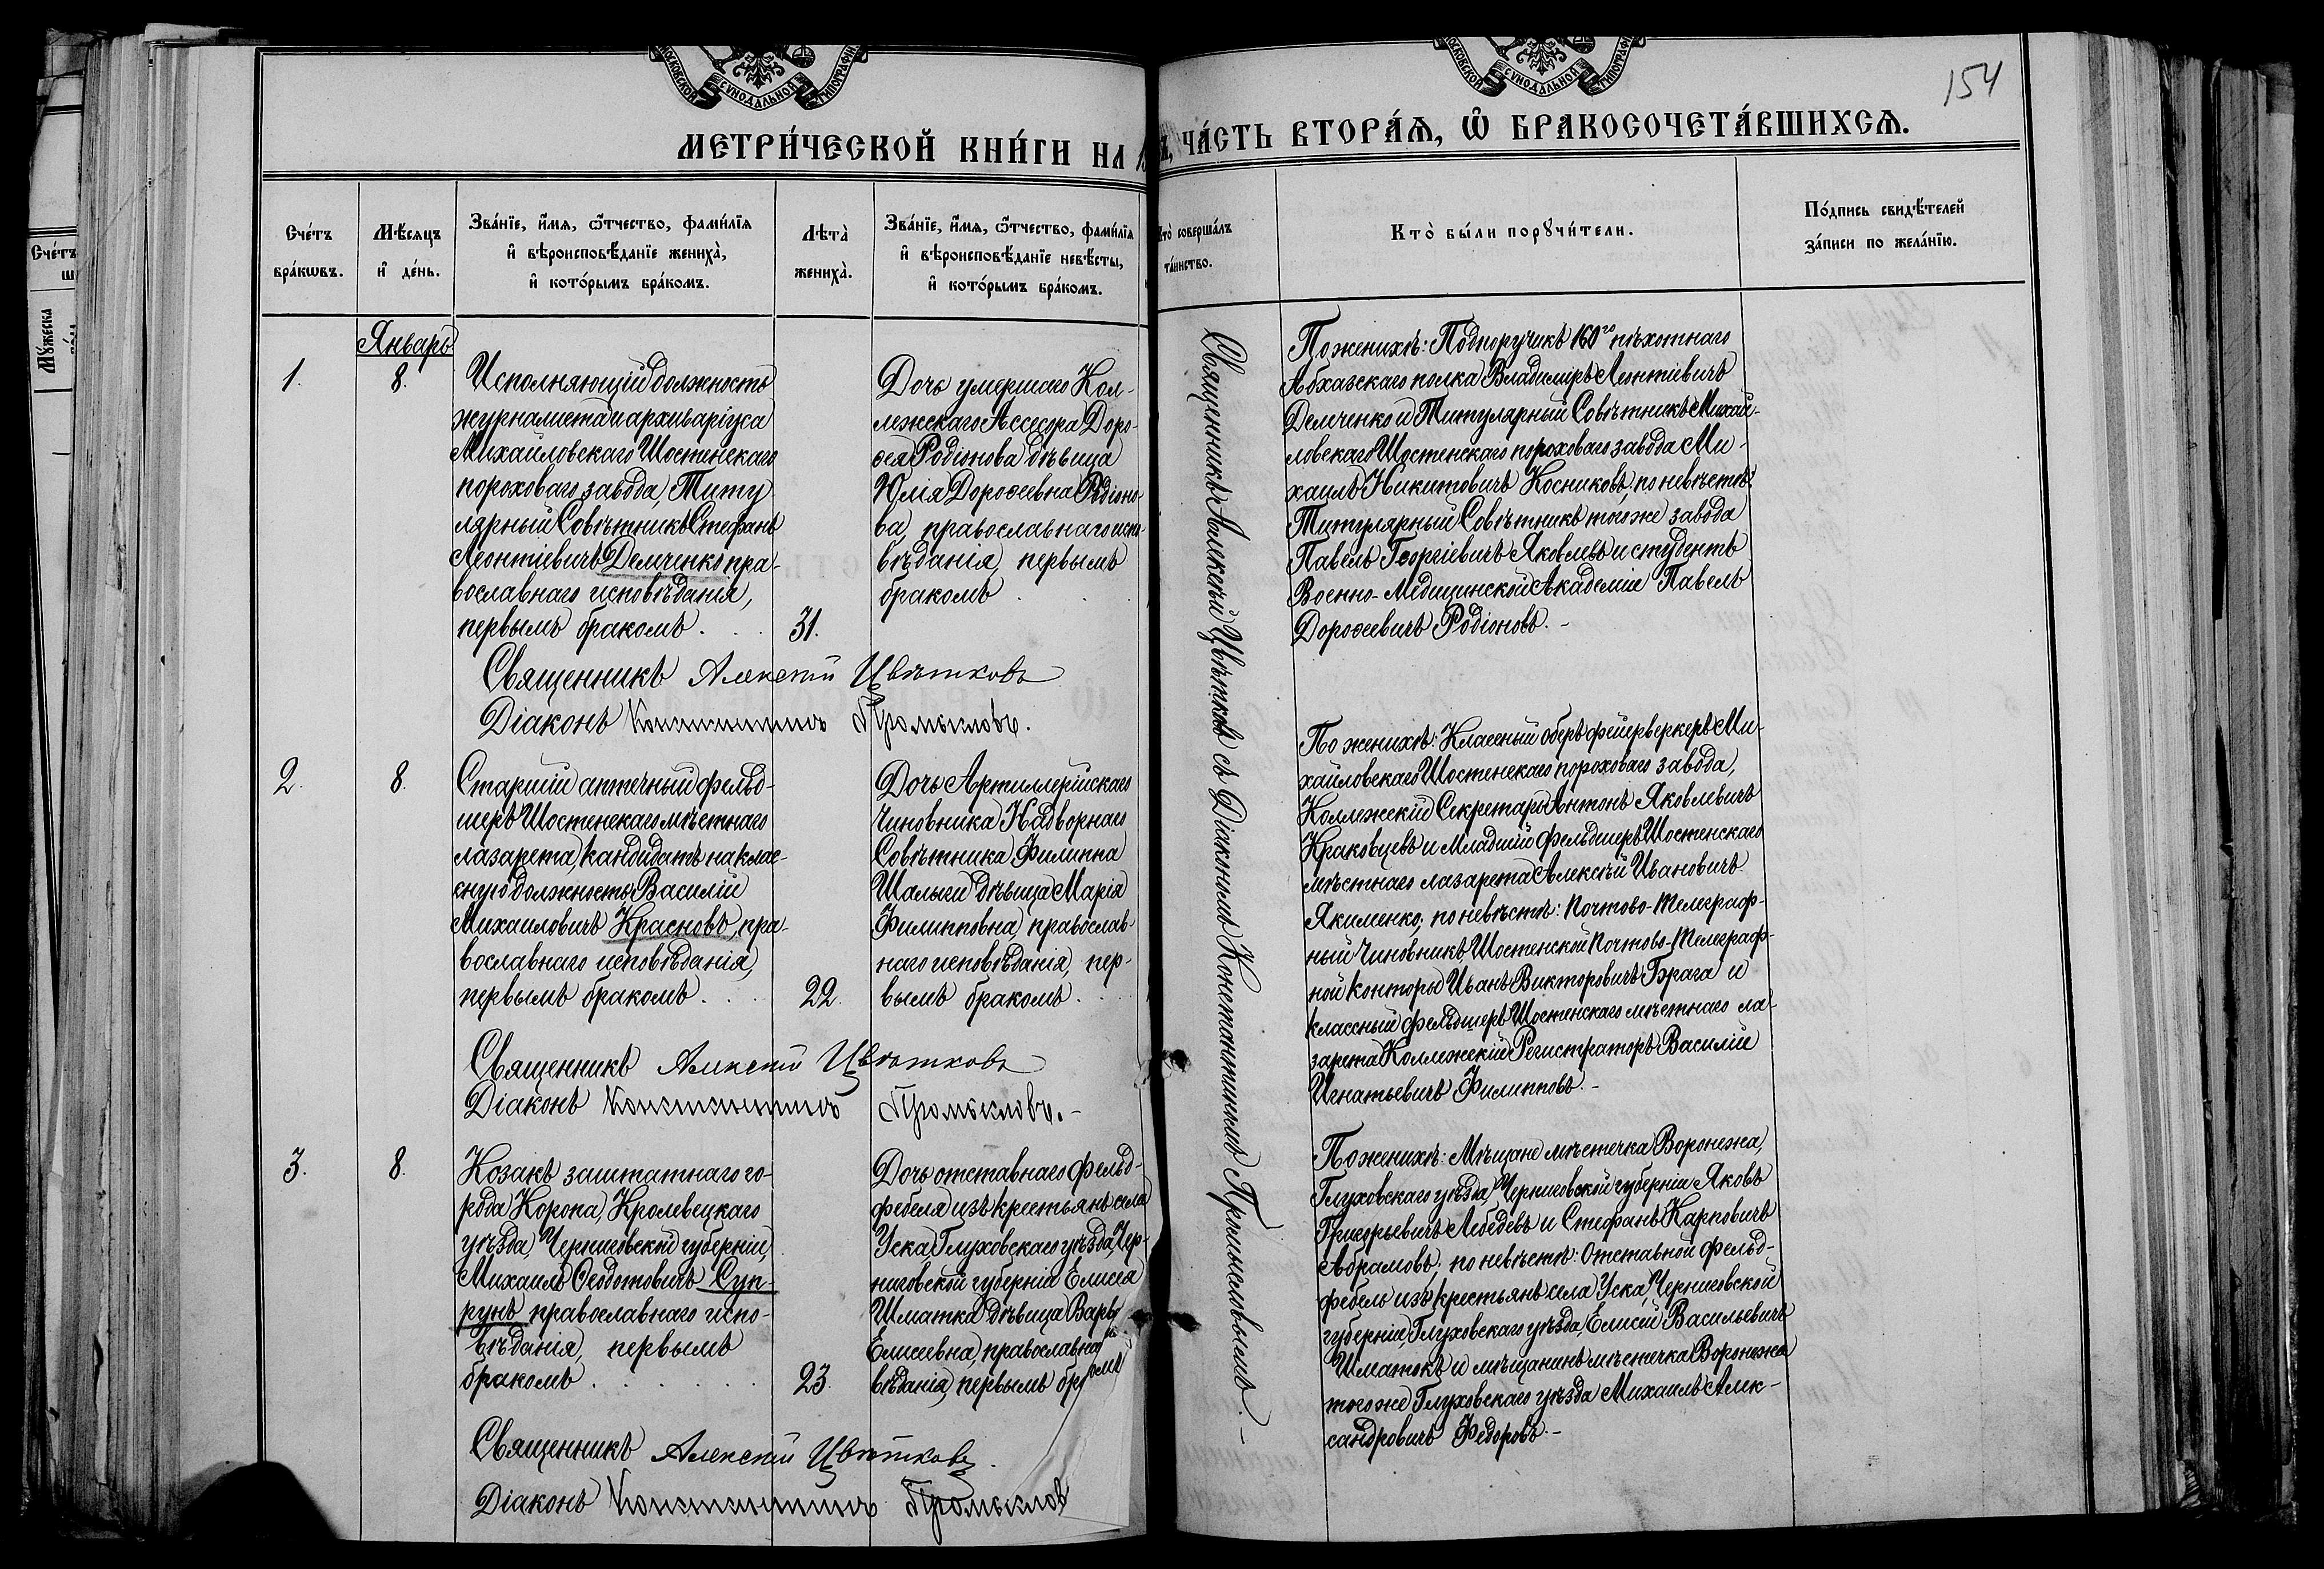 154
МОСКОВСКОЙ СѴНОДАЛЬНОЙ ТИПОГРАФІИ
МОСКОВСКОЙ СѴНОДАЛЬНОЙ ТИПОГРАФІИ
МЕТРИ́ЧЕСКОЙ КНИ́ГИ НА 1
ЧА́СТЬ ВТОРА́Ѧ, Ѽ БРАКОСОЧЕТА́ВШИХСѦ.
Сче́тъ
бра́кѡвъ.
Мѣ́сѧцъ
и҆ де́нь.
Зва́нїе, и҆́мѧ, ѻ҆́тчество, фами́лїѧ
и҆ вѣроисповѣ́данїе жениха̀,
и҆ кото́рымъ бра́комъ.
Лѣта̀
жениха̀.
Зва́нїе, и҆́мѧ, ѻ҆́тчество, фами́лїѧ
и҆ вѣроисповѣ́данїе невѣ́сты,
и҆ кото́рымъ бра́комъ.
Кто̀ соверша́лъ
та́инство.
Кто̀ бы́ли порꙋчи́тели.
По́дпись свидѣ́телей
за́писи по жела́нїю.
Январь
1.
8.
Исполняющій должность
журналиста и архиваріуса
Михайловскаго Шостенскаго
пороховаго завода, Титу
лярный Совѣтникъ Стефанъ
Леонтіевичъ Демченко пра-
вославнаго исповѣданія,
первымъ бракомъ . . .
31.
Дочь умершаго Кол-
лежскаго Ассесора Доро-
ѳея Родіонова дѣвица
Юлія Дороѳеевна Родіоно-
ва, православнаго испо-
вѣданія, первымъ
бракомъ . . .
Священникъ Алексѣй Цвѣтковъ съ Діакономъ Константиномъ Промысловымъ. –
По женихѣ: Подпоручикъ 160го пѣхотнаго
Абхазскаго полка Владиміръ Леонтіевичъ
Демченко и Титулярный Совѣтникъ Михай-
ловскаго Шостенскаго пороховаго завода Ми-
хаилъ Никитовичъ Косниковъ, по невѣстѣ:
Титулярный Совѣтникъ того же завода
Павелъ Георгіевичъ Яковлевъ и студентъ
Военно-Медицинской Академіи Павелъ
Дороѳеевичъ Родіоновъ. –
Священникъ Алексѣй Цвѣтковъ
Діаконъ Константинъ Промысловъ.
2.
8.
Старшій аптечный фельд-
шеръ Шостенскаго мѣстнаго
лазарета, кандидатъ на клас-
сную должность Василій
Михаиловичъ Красновъ, пра-
вославнаго исповѣданія,
первымъ бракомъ . . .
22.
Дочь Артиллерійскаго
Чиновника Надворнаго
Совѣтника Филиппа
Шалыги дѣвица Марія
Филипповна, православ-
наго исповѣданія, пер-
вымъ бракомъ . . .
По женихѣ: Классный оберъ фейерверкеръ Ми-
хайловскаго Шостенскаго пороховаго завода,
Коллежскій Секретарь Антонъ Яковлевичъ
Краковцевъ и Младшій фельдшеръ Шостенскаго
мѣстнаго лазарета Алексѣй Ивановичъ
Якименко; по невѣстѣ: Почтово-Телеграф-
ный Чиновникъ, Шостенской Почтово-Телеграф-
ной конторы Иванъ Викторовичъ Брага и
классный фельдшеръ Шостенскаго мѣстнаго ла-
зарета Коллежскій Регистраторъ Василій
Игнатьевичъ Филипповъ. –
Священникъ Алексѣй Цвѣтковъ
Діаконъ Константинъ Промысловъ. –
3.
8.
Козакъ заштатнаго го-
рода Коропа, Кролевецкаго
уѣзда, Черниговской губерніи,
Михаилъ Ѳеодотовичъ Суп-
рунъ православнаго испо-
вѣданія, первымъ
бракомъ . . . . . .
23.
Дочь отставнаго фельд-
фебеля изъ крестьянъ села
Уска, Глуховскаго уѣзда, Чер-
ниговской губерніи Елисея
Шматка дѣвица Варв
Елисеевна, православна
вѣданія, первымъ бракомъ
По женихѣ: Мѣщане мѣстечка Воронежа,
Глуховскаго уѣзда, Черниговской губерніи Яковъ
Григорьевичъ Лебедевъ и Стефанъ Карповичъ
Абрамовъ; по невѣстѣ: Отставной фельд-
фебель изъ крестьянъ села Уска, Черниговской
губерніи, Глуховскаго уѣзда, Елисей Васильевичъ
Шматокъ и мѣщанинъ мѣстечка Воронежа
того же Глуховскаго уѣзда Михаилъ Алек-
сандровичъ Федоровъ. –
Священникъ Алексѣй Цвѣтковъ.
Діаконъ Константинъ Промыслов